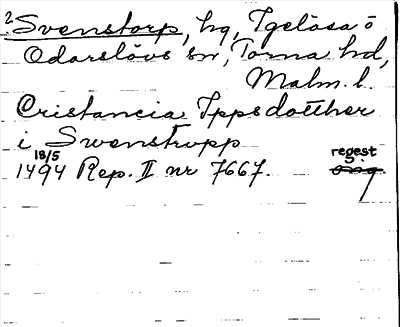 2 Svenstorp, hg, Igelösa o
Odarslövs sn, Torna hd,
Malm. l.
Cristancia Jppsdotther
i Swenstrupp
18/5
1494 Rep. II nr 7667. regest
orig.